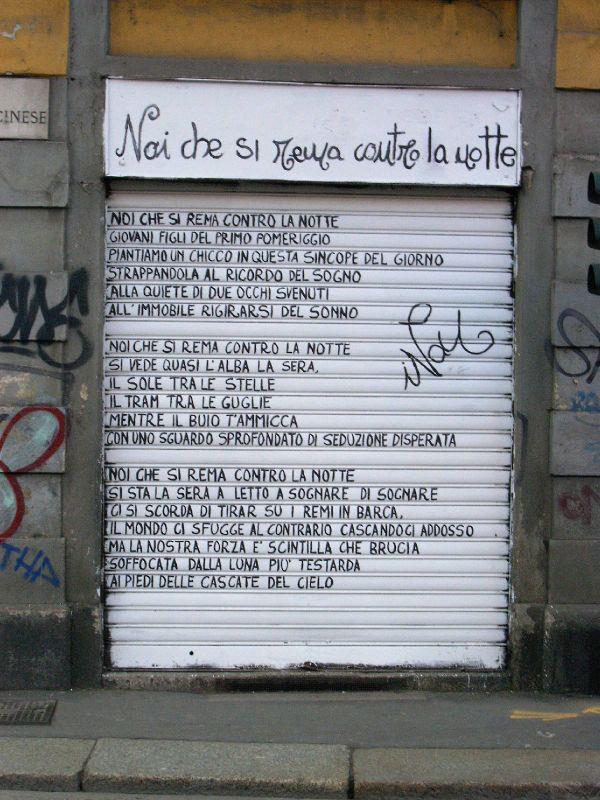 CINESE
Noi che si rema contro la notte
NOI CHE SI REMA CONTRO LA NOTTE
GIOVANI FIGLI DEL PRIMO POMERIGGIO
PIANTIAMO UN CHICCO IN QUESTA SINCOPE DEL GIORNO
STRAPPANDOLA AL RICORDO DEL SOGNO
ALLA QUIETE DI DUE OCCHI SVENUTI
ALL'IMMOBILE RIGIRARSI DEL SONNO
NOI CHE SI REMA CONTRO LA NOTTE
SI VEDE QUASI L'ALBA LA SERA,
IL SOLE TRA LE STELLE
IL TRAM TRA LE GUGLIE
MENTRE IL BUIO T'AMMICCA
CON UNO SGUARDO SPROFONDATO DI SEDUZIONE DISPERATA
NOI CHE SI REMA CONTRO LA NOTTE
SI STA LA SERA A LETTO A SOGNARE DI SOGNARE
CI SI SCORDA DI TIRAR SU I REMI IN BARCA,
IL MONDO CI SFUGGE AL CONTRARIO CASCANDOCI ADDOSSO
MA LA NOSTRA FORZA E' SCINTILLA CHE BRUCIA
SOFFOCATA DALLA LUNA PIU' TESTARDA
AI PIEDI DELLE CASCATE DEL CIELO